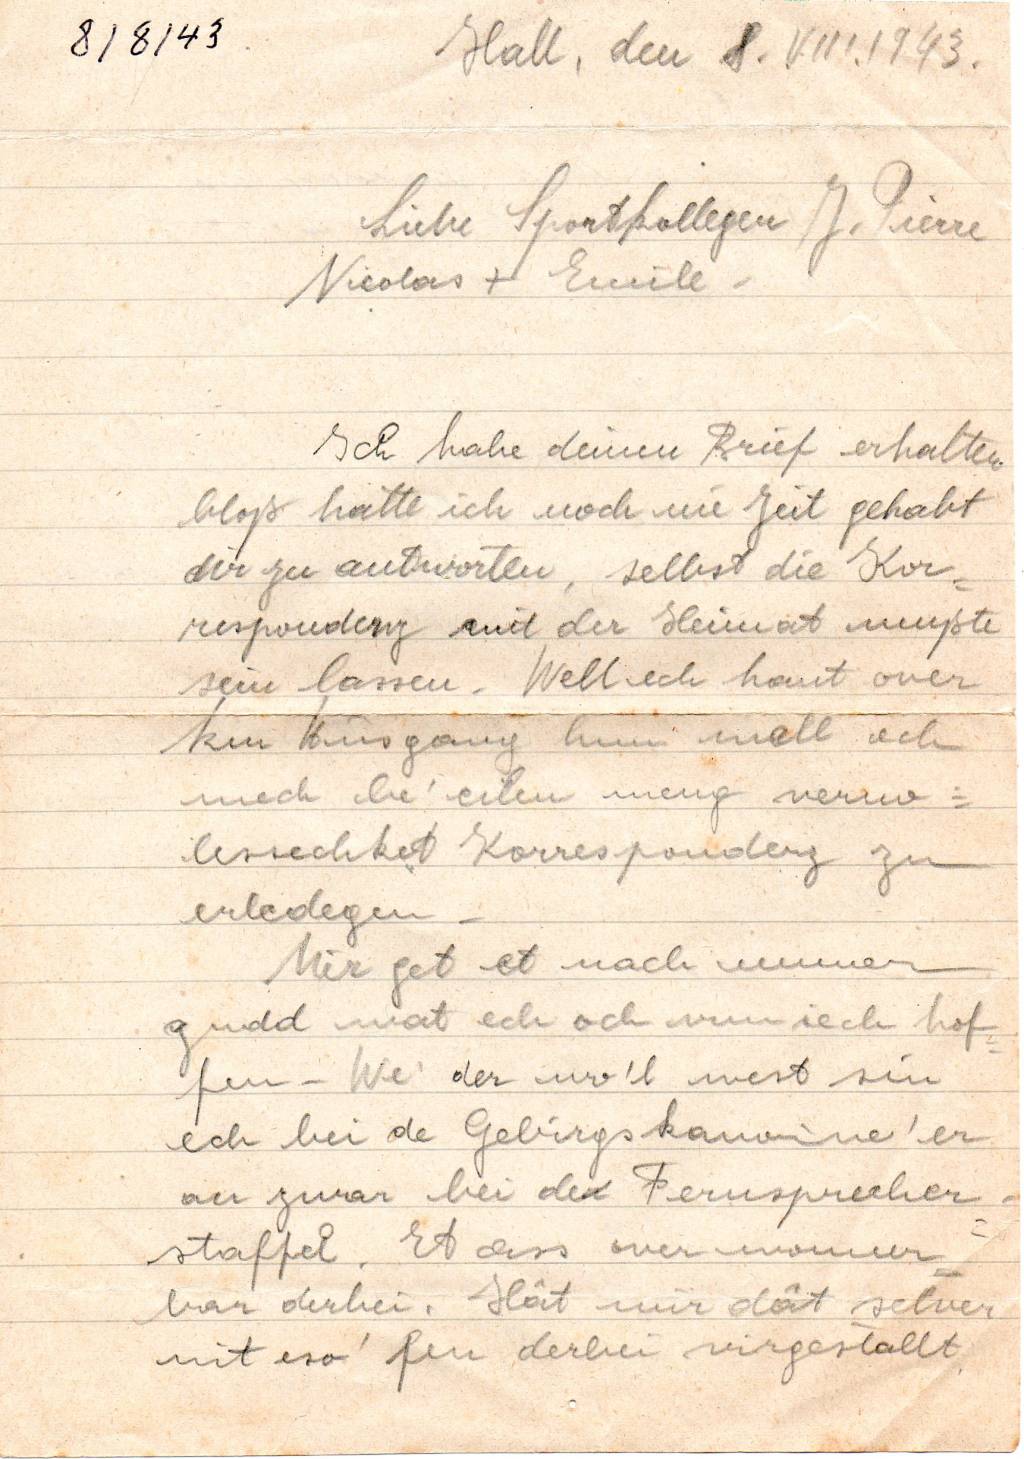 8/8/43
Hall, den 8. VIII. 1943.
Liebe Sportkollegen J. Pierre
Nicolas + Emile -
Ich habe deinen Brief erhalten
bloß hatte ich noch nie Zeit gehabt
dir zu antworten, selbst die Kor=
respondenz mit der Heimat mußte
sein lassen. Well ech haut over
ken Ausgang hun well ech
mech be'eilen meng verno=
lessechket Korrespondenz zu
erledegen -
Mir get et nach emmer
gudd wat ech och vun iech hof=
fen - We' der wo'l west sin
ech bei de Gebirgskanoine'er
an zwar bei der Fernsprecher=
staffel. Et ass over wonner=
bar derbei. Hät mir dât selver
nit eso' fen derbei virgestallt